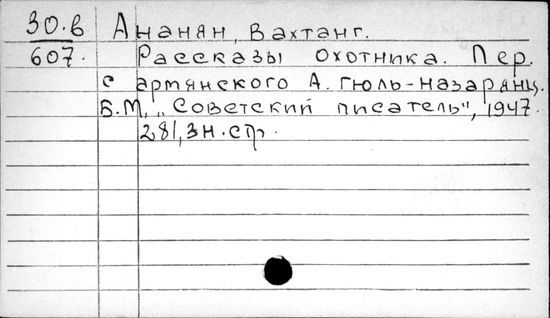 30.в Ананян, Вахтанг.
607. Рассказы охотника. Пер.
с армянского А. Гюль-Назарянц.
Б.М., „Советский писатель", 1947.
281, 3 н. стр.